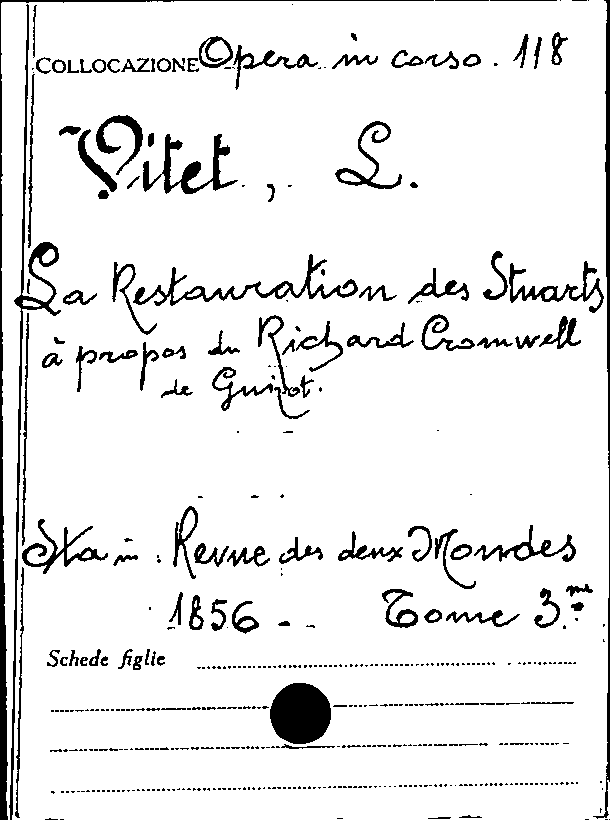 COLLOCAZIONE Opera in corso. 118
Vitet, L.
La Restauration des Stuarts
à propos du Richard Cromwell
de Guizot.
Sta in: Revue des deux Mondes
1856 - Tome 3.me
Schede figlie